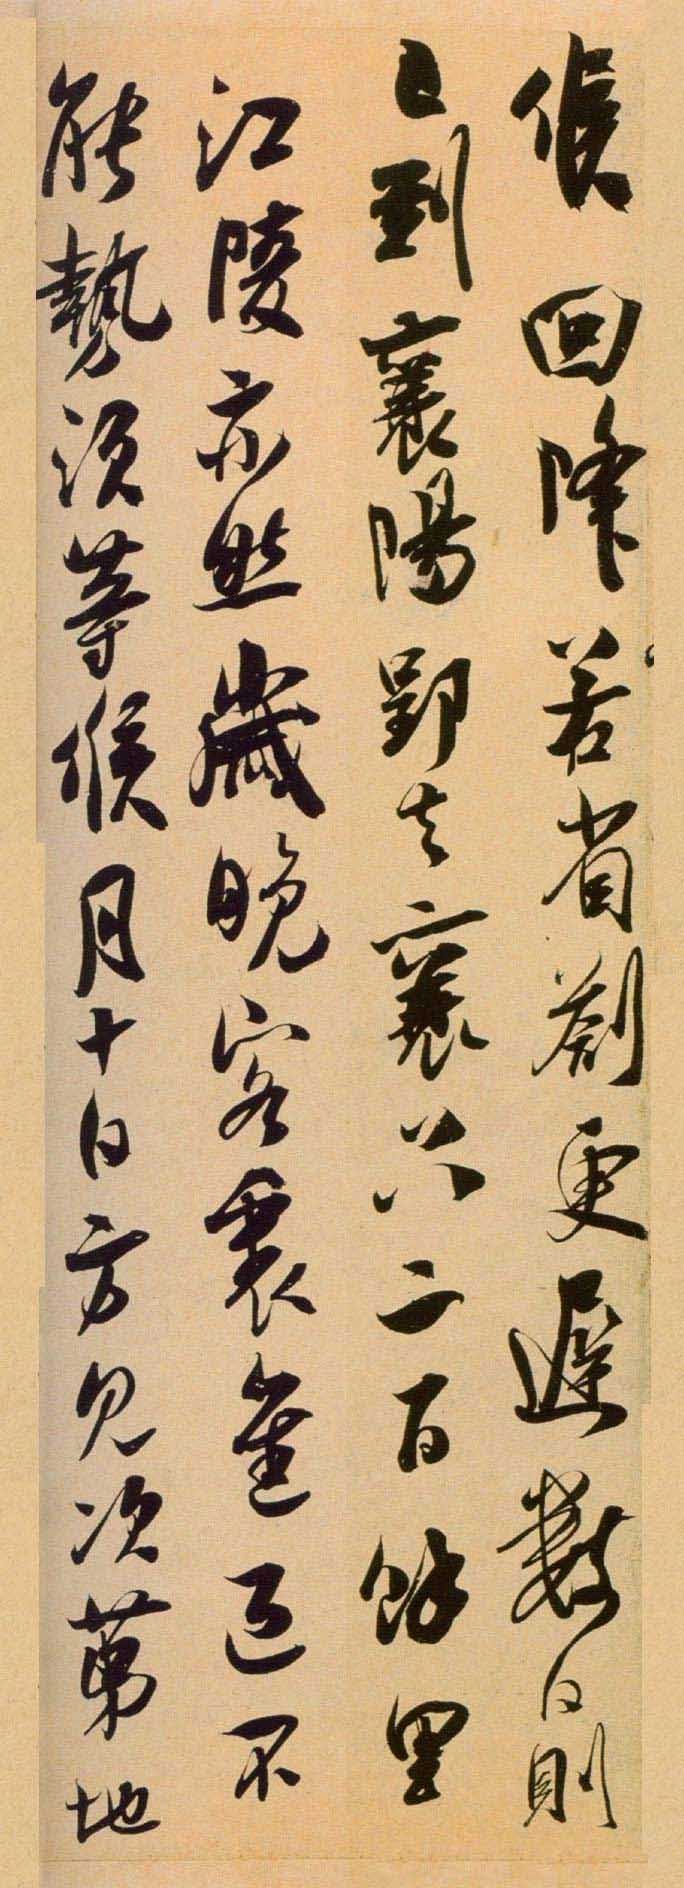 候回降若省劄更遲數日則
已到襄陽郢去襄只二百餘里
江陵亦然歲晚客裏進退不
能勢須等候月十日方見次第地